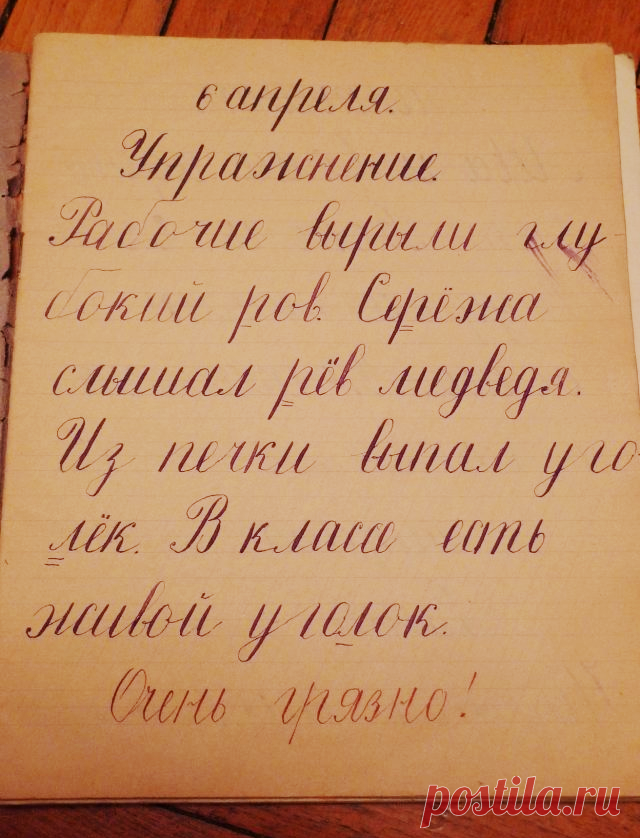 6 апреля.
Упражнение.
Рабочие вырыли глу-
бокий ров. Серёжа
слышал рёв медведя.
Из печки выпал уго-
лёк. В классе есть
живой уголок.
Очень грязно!
postila.ru